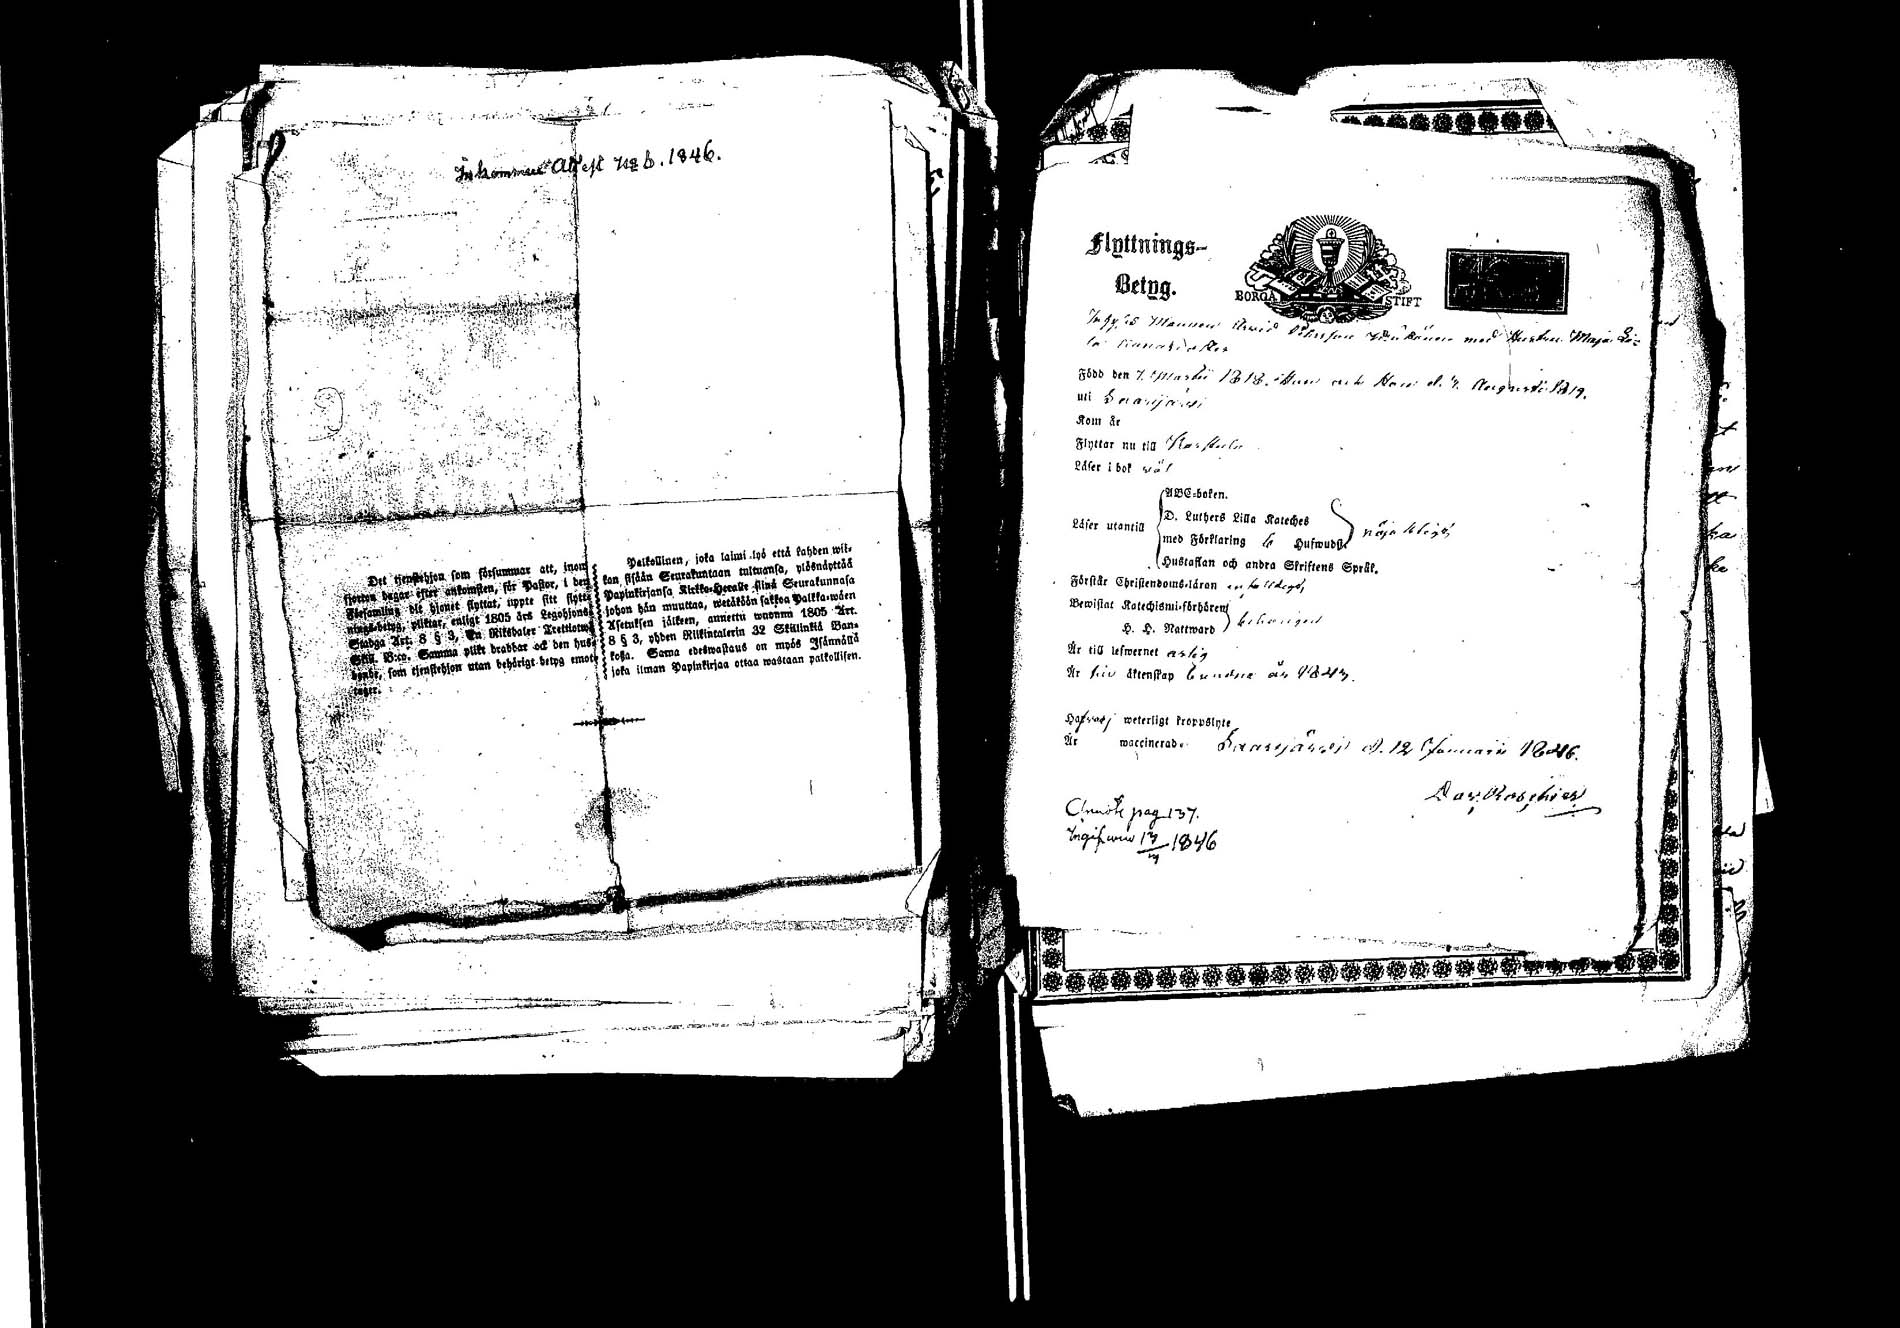 Inkommen Attest No 6. 1846.
Det tjenstehjon som försummar att, inom
fjorton dagar efter ankomsten, för Pastor, i den
Församling dit hjonet flyttat, uppte sitt flytt-
nings-betyg, pliktar, enligt 1805 års Legohjons-
Stadga Art. 8 § 3, En Riksdaler Trettiotwå
Skill. B:co. Samma plikt drabbar ock den hus-
bonde, som tjenstehjon utan behörigt betyg emot-
tager.
Palkollinen, joka laimi-lyö että kahden wii-
kon sisään Seurakuntaan tultuansa, ylösnäyttää
Papinkirjansa Kirkko-Herralle siinä Seurakunnasa
johon hän muuttaa, wetäköön sakkoa Palkka-wäen
Asetuksen jälkeen, annettu wuonna 1805 Art.
8 § 3, yhden Riikintalerin 32 Skillinkiä Ban-
kosa. Sama edeswastaus on myös Isännällä
joka ilman Papinkirjaa ottaa wastaan palkollisen.
Flyttnings-
Betyg.
BORGÅ STIFT
med Hustru Maja
Född den 7 Martii 1818. Hun och Han d. 7. Augusti 1819.
uti Saarijärvi
Kom år
Flyttar nu till Karstula
Läser i bok väl
ABC-boken.
D. Luthers Lilla Kateches
Läser utantill
med Förklaring 6 Hufwudst.
nöjaktligt
Hustaflan och andra Skriftens Språk.
Förstår Christendoms-läran enfaldigt
Bewistat Katechismi-förhören
H. H. Nattward
behörigen
Är till lefwernet ärlig
Är äktenskap bundne år 1843.
Hafva ej weterligt kroppslyte
Är waccinerade Saarijärvi d. 12 Januarii 1846.
Dav. Roschier
pag 137.
Ingifwen 13 1846